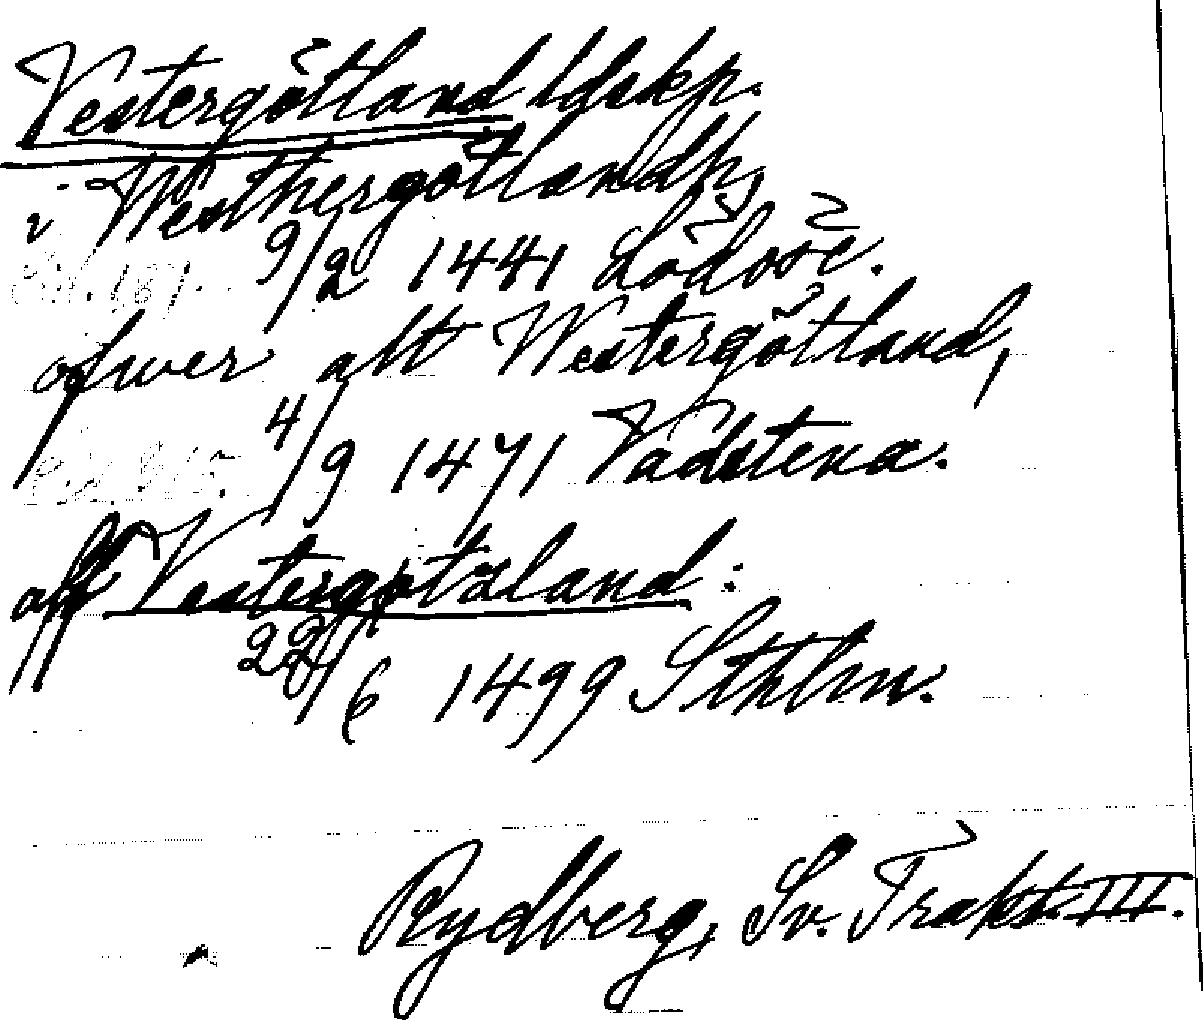 Vestergötland ldskp.
i Westhergötlandh,
9/2 1441 Lödöse.
ofwer alt Westergötland,
4/9 1471 Vadstena.
aff Vestergotzland:
22/6 1499 Sthlm.
Rydberg, Sv. Trakt. III.